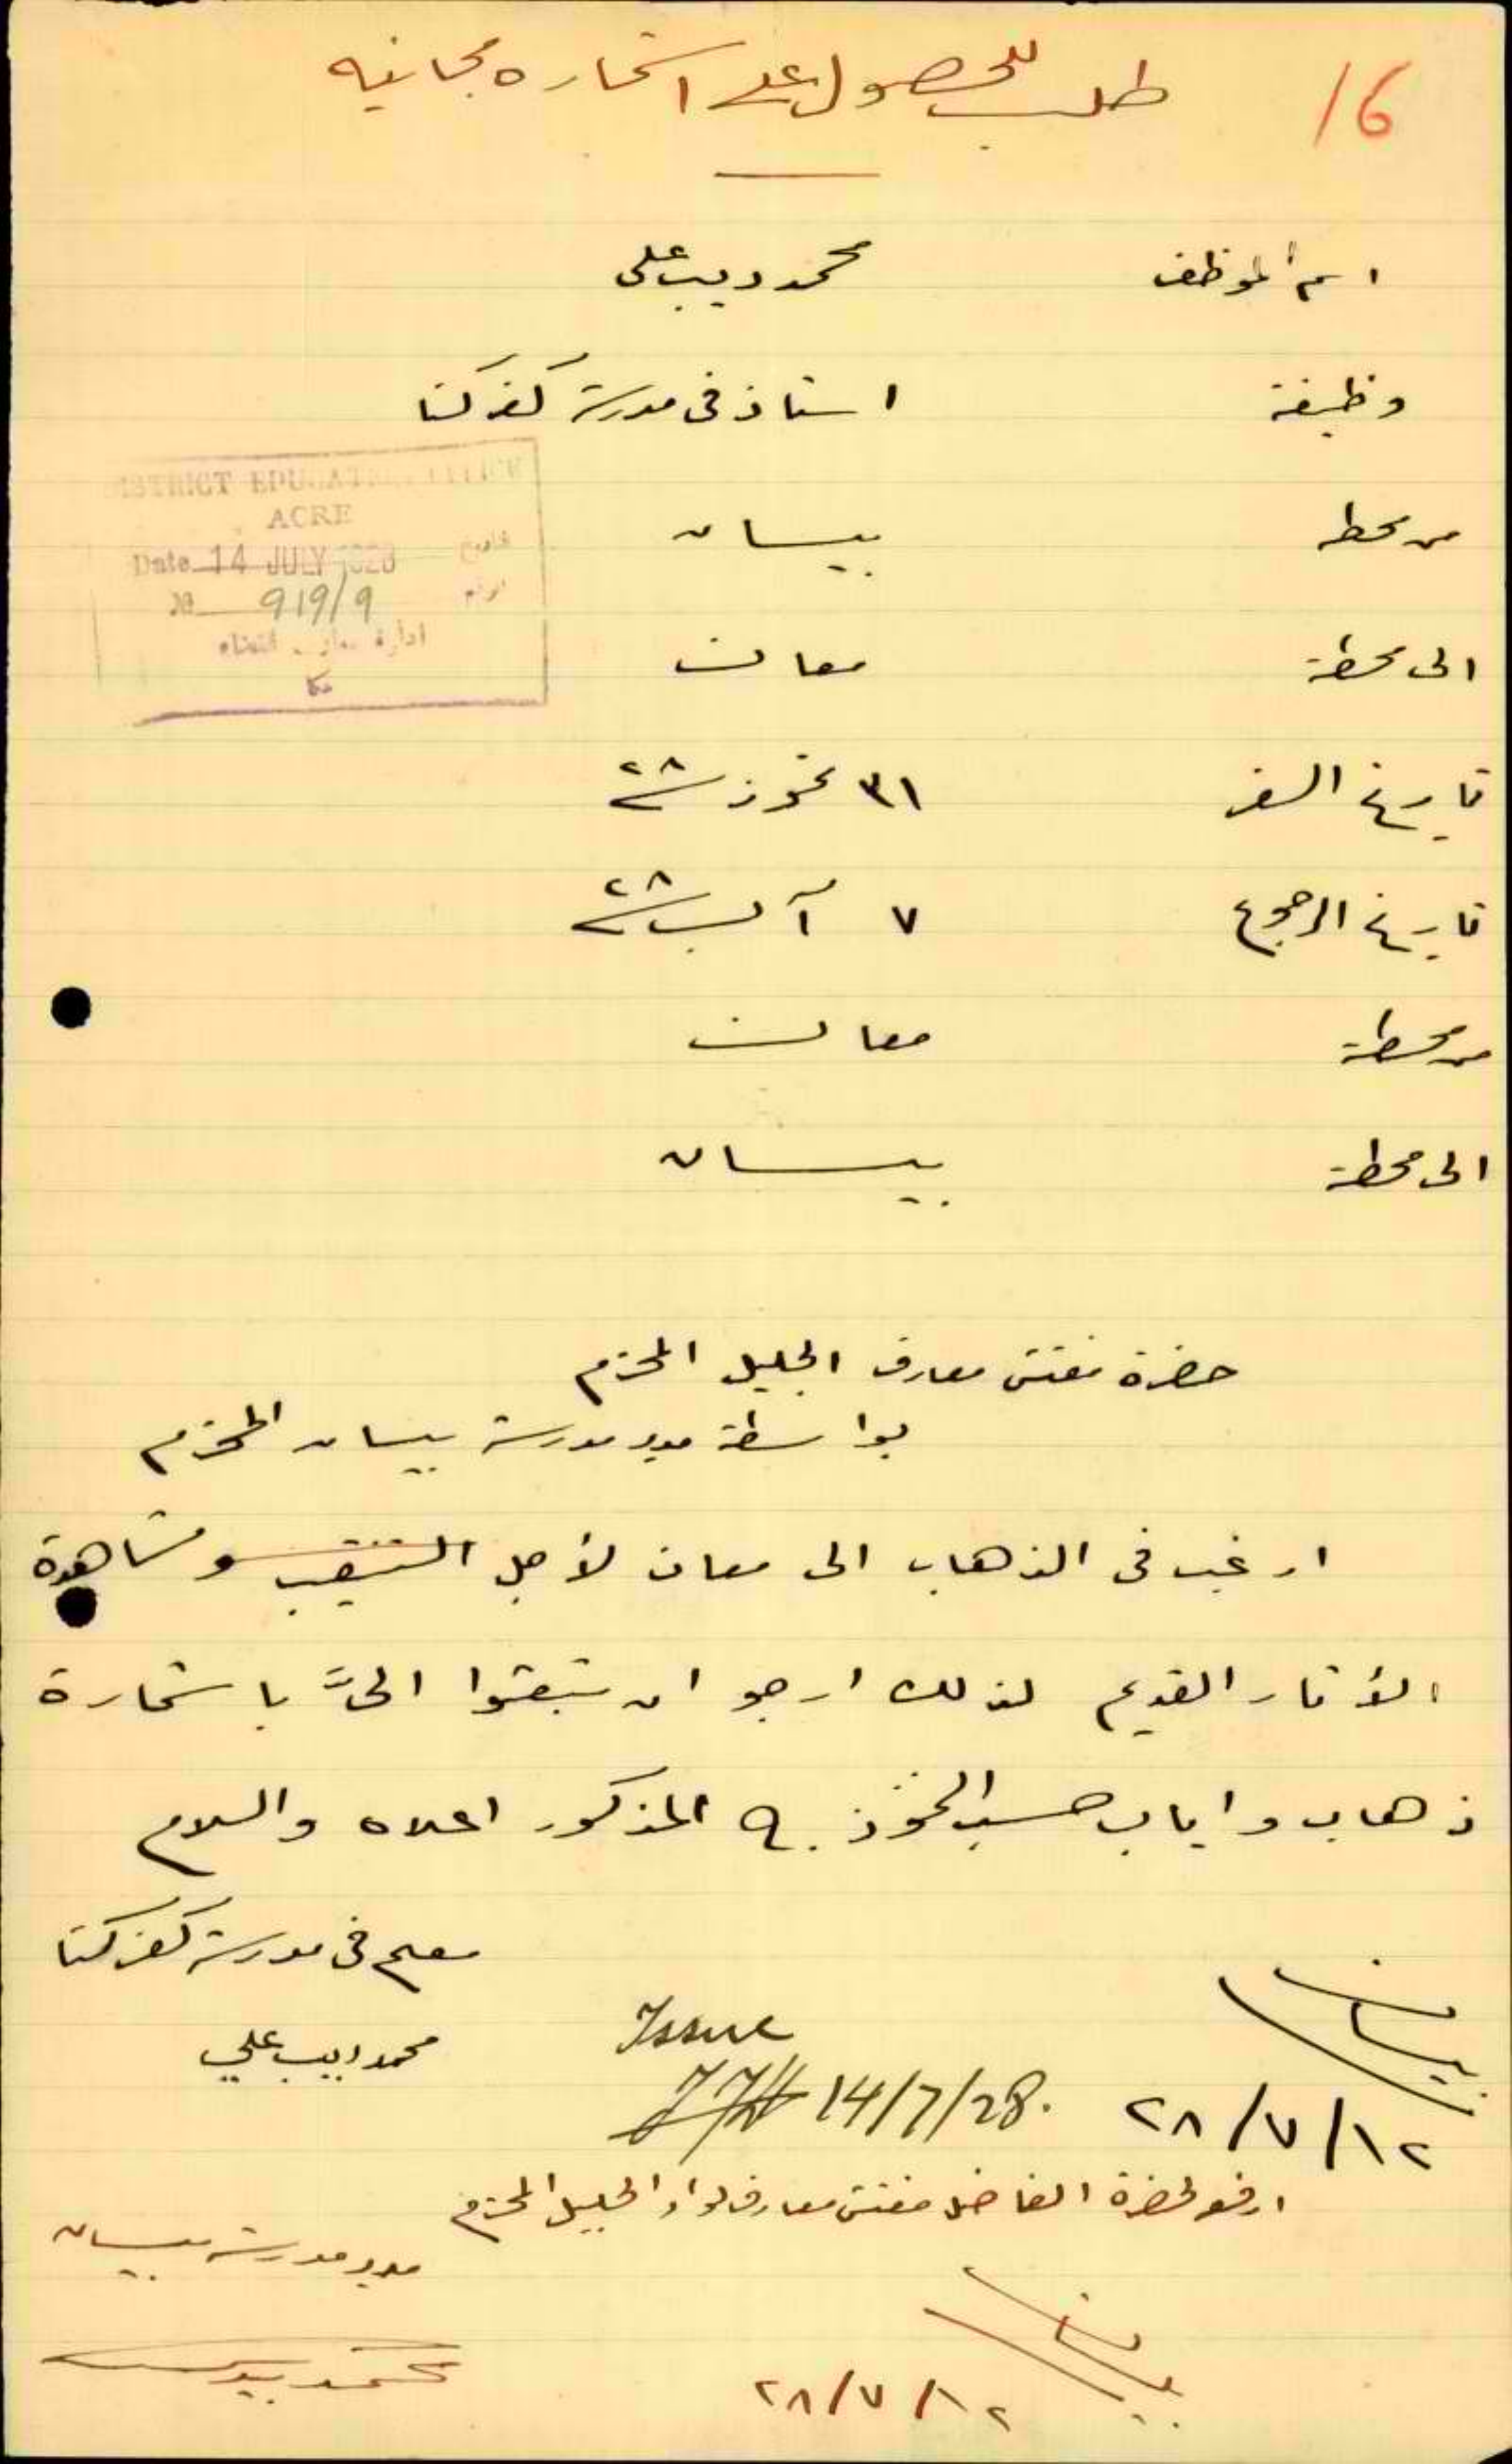 16
طلب للحصول على استمارة مجانيه
اسم الموظف محمد ديب على
وظيفة استاذ فى مدرسة كفركنا
DISTRICT EDUCATION OFFICE
ACRE
Date 14 JULY 1928 تاريخ
No 919/9 نومرو
ادارة معارف القضاء
عكا
من محطه بيسان
الى محطة معان
تاريخ السفر ٣١ تموز سنة ٢٨
تاريخ الرجوع ٧ آب سنة ٢٨
من محطة معان
الى محطة بيسان
حضرة مفتش معارف الجليل المحترم
بواسطة مدير مدرسة بيسان المحترم
ارغب فى الذهاب الى معان لأجل التنقيب ومشاهدة
الأثار القديم لذلك ارجو ان تبعثوا الىَّ باستمارة
ذهاب واياب حسب النموذج المذكور اعلاه والسلام
معلم فى مدرسة كفركنا
محمد ديب علي
بيسان
١٢/٧/٢٨
Issue
14/7/28.
ارفع لحضرة الفاضل مفتش معارف لواء الجليل المحترم
مدير مدرسة بيسان
بيسان
١٢/٧/٢٨